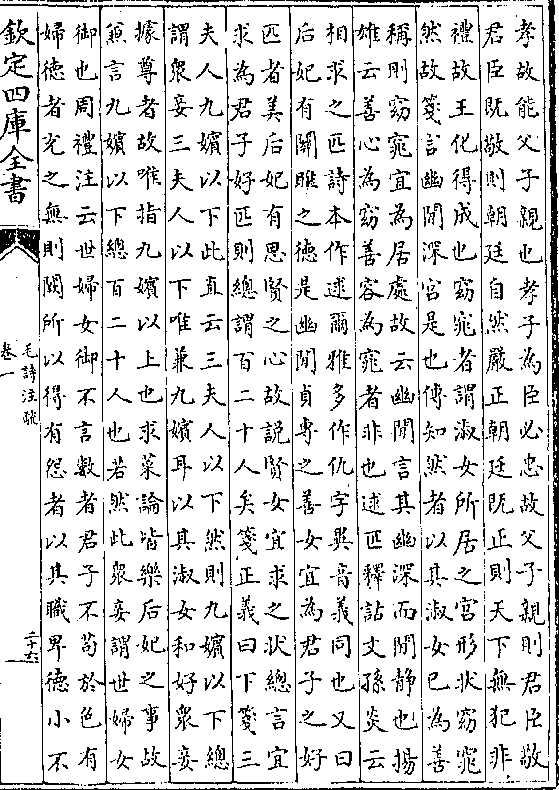 孝故能父子親也孝子為臣必忠故父子親則君臣敬
君臣既敬則朝廷自然嚴正朝廷既正則天下無犯非
禮故王化得成也窈窕者謂淑女所居之宫形狀窈窕
然故箋言幽閒深宫是也傳知然者以其淑女已為善
稱則窈窕宜為居處故云幽閒言其幽深而閒静也揚
雄云善心為窈善容為窕者非也逑匹釋詁文孫炎云
相求之匹詩本作逑爾雅多作仇字異音義同也又曰
后妃有關雎之德是幽閒貞專之善女宜為君子之好
匹者美后妃有思賢之心故説賢女宜求之狀總言宜
求為君子好匹則總謂百二十人矣箋正義曰下箋三
夫人九嬪以下此直云三夫人以下然則九嬪以下總
謂衆妾三夫人以下唯兼九嬪耳以其淑女和好衆妾
據尊者故唯指九嬪以上也求菜論皆樂后妃之事故
兼言九嬪以下總百二十人也若然此衆妾謂世婦女
御也周禮注云世婦女御不言數者君子不苟於色有
婦德者充之無則闕所以得有怨者以其職卑德小不
欽定四庫全書
毛詩注疏
卷一
二十六